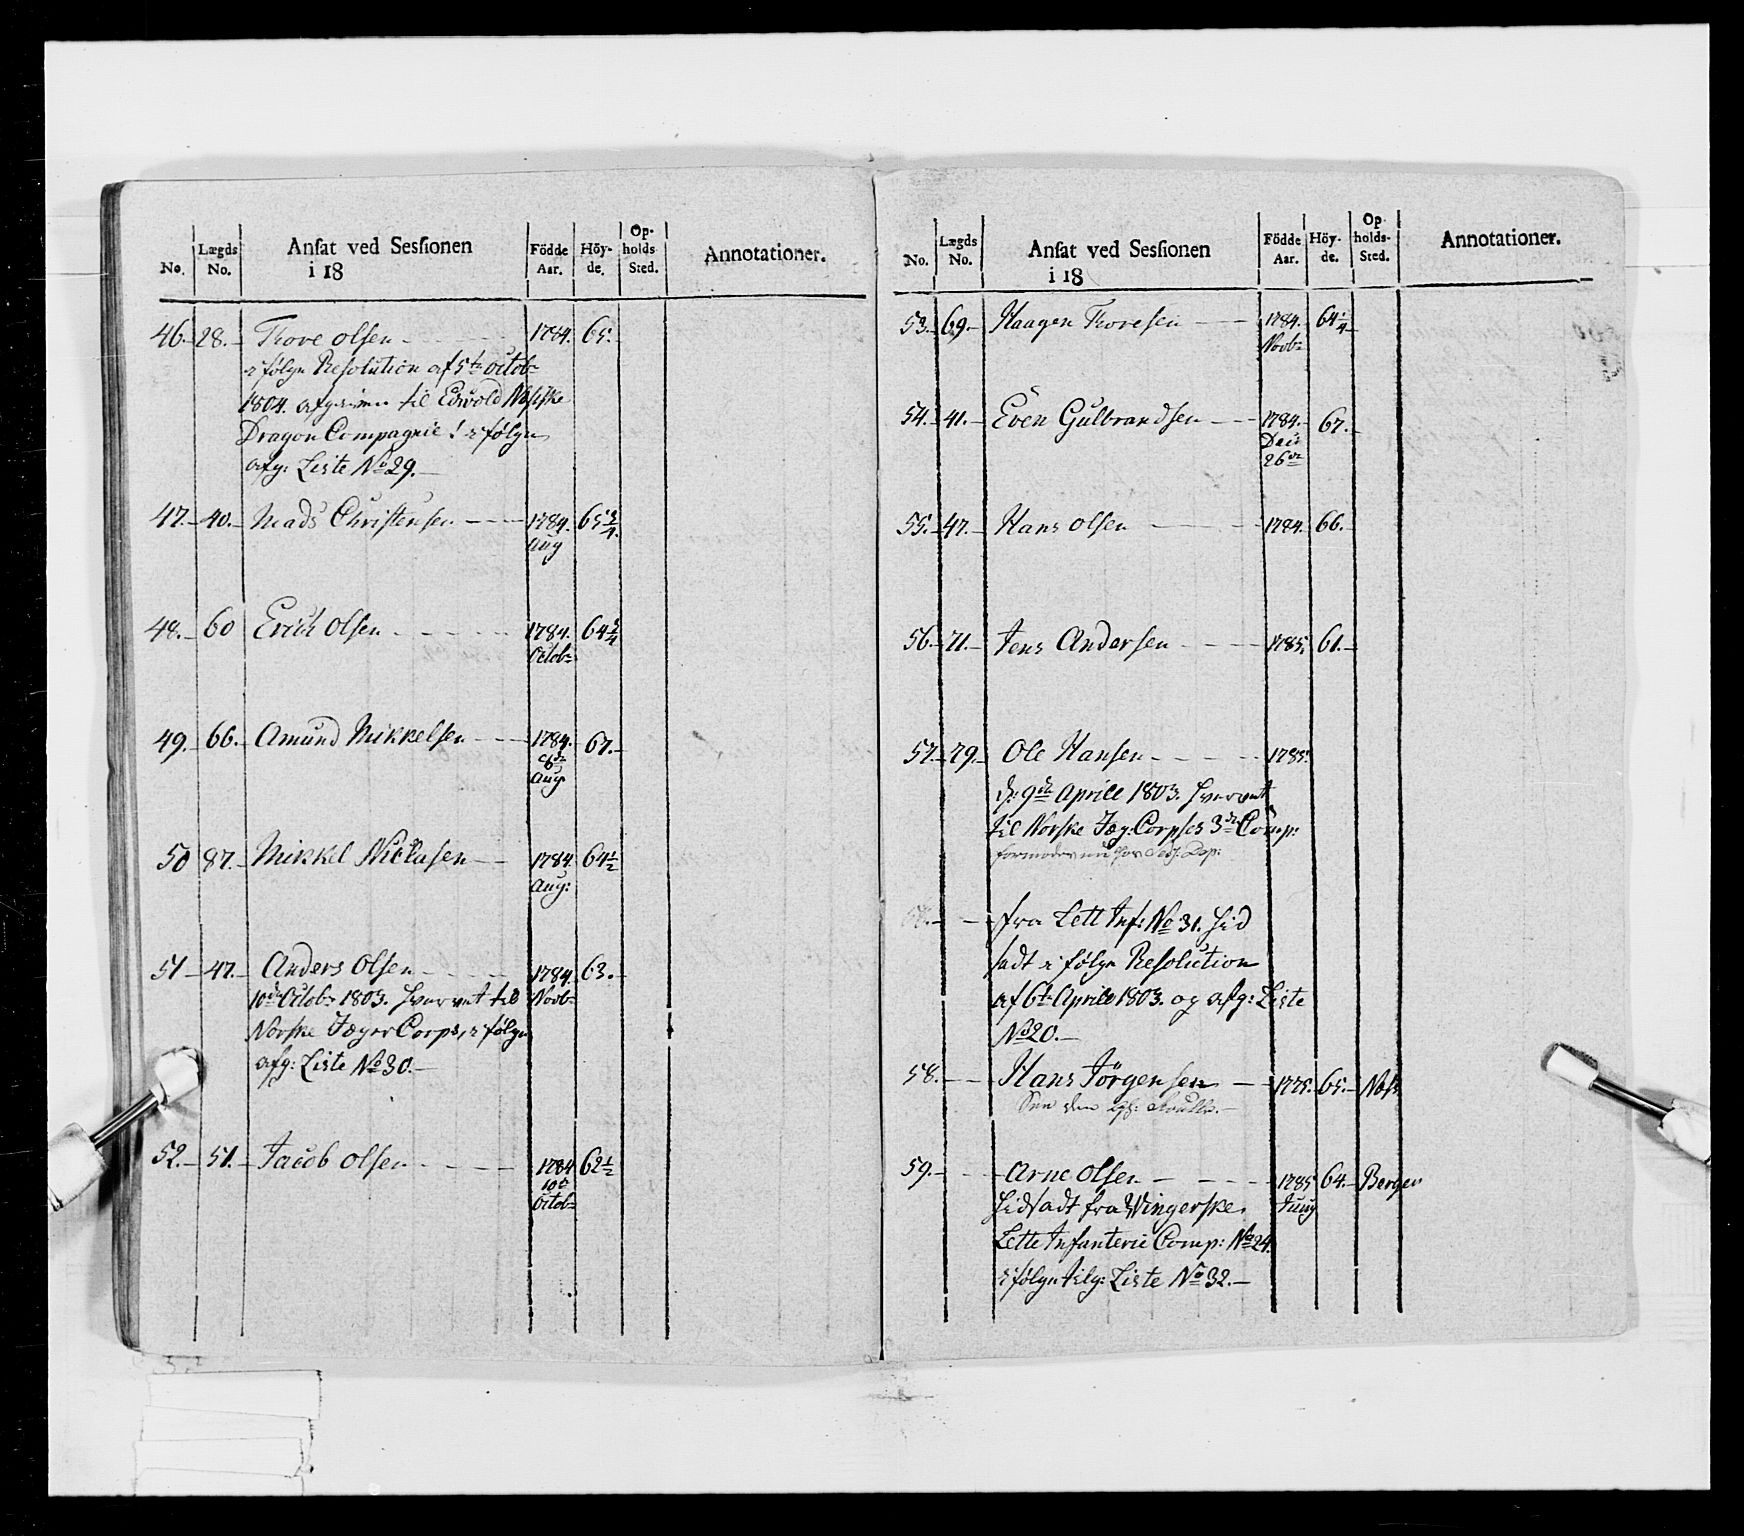 No. Lægds No. Ansat ved Sessionen i 18 Födde Aar. Höy-de. Op-holds Sted. Annotationer.
46.- 28.- Tove Olsen 1784. 65.
ifölge Resolution af 5te Octobr
1804. afgiven til Edsvold
Dragon Compagnie! ifölge
afg: Liste No 29.-
47.- 40.- Mads Christensen 1784. 65 3/4.
Aug
48.- 60 Erich Olsen 1784. 64 3/4
Octobr
49.- 66.- Amund Mikkelsen 1784. 67.-
Aug
50 87.- Mikkel Nielsen 1784 64 1/2
Aug:
51- 47.- Anders Olsen 1784. 63.-
10de Octobr 1803. hvervet til Novbr
Norske Jæger Corps, ifölge
afg: Liste No 30.-
52.- 51.- Jacob Olsen 1784 62 1/2
10de
Octobr
No. Lægds No. Ansat ved Sessionen i 18 Födde Aar. Höy-de. Op-holds-Sted. Annotationer.
53.- 69.- Haagen Thoresen 1784. 64 1/4
Novbr
54.- 41.- Even Gulbrandsen 1784.- 67.-
26de
55.- 47.- Hans Olsen 1784. 66.-
56.- 71.- Jens Andersen 1785. 61.-
57.- 79.- Ole Hansen 1785.
d: 9de Aprill 1803. hvervet
til Norske Jæg: Corpses 3die Comp:
fra Lett Inf: No 31. hid
sadt ifölge Resolution
af 6te Aprill 1803. og afg: Liste
No 20.-
58.- Hans Jörgensen 1775. 65.- Næss
59.- Arne Olsen 1785 64.- Berger
hidsadt fra Wingerske Juny
Lette Infanterie Comp: No 24.
ifölge tilg: Liste No 32.-